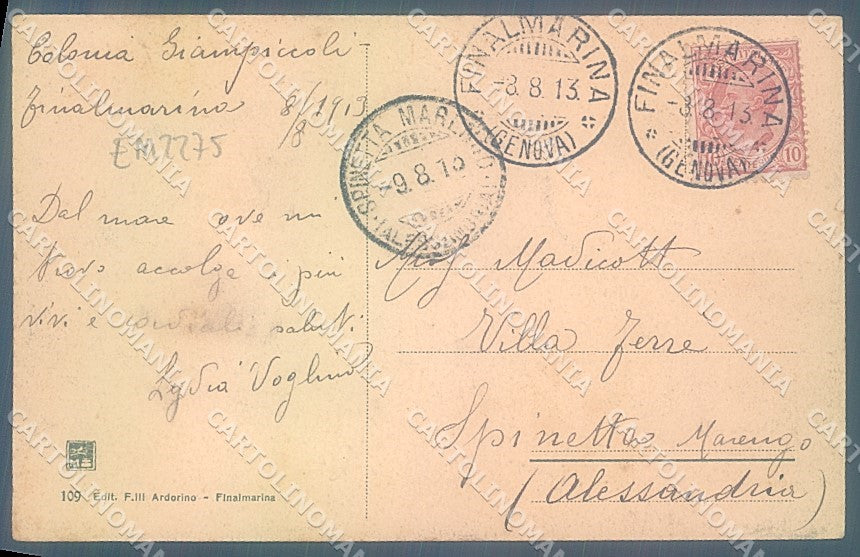 Colonia Giampiccoli
Finalmarina 8/8 1913
EM2275
Dal mare ove mi
trovo accolga i più
vivi e cordiali saluti
Lydia Voglino
109 Edit. F.lli Ardorino - Finalmarina
FINALMARINA
-8.8.13.
(GENOVA)
FINALMARINA
-8.8.13.
(GENOVA)
10
SPINETTA MARENGO
-9.8.13
(ALESSANDRIA)
Miss Madicott
Villa Ferre
Spinetta Marengo
(Alessandria)
CARTOLINOMANIA